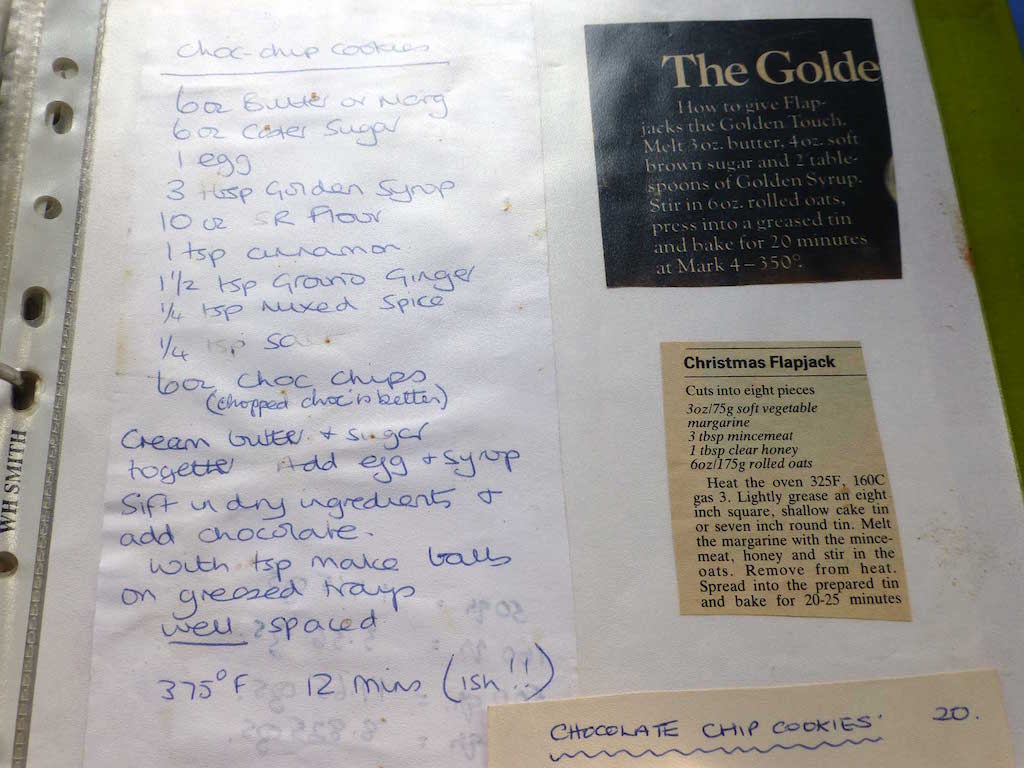 choc-chip cookies
6oz Butter or Marg
6oz Caster Sugar
1 egg
3 tbsp Golden Syrup
10 oz SR Flour
1 tsp cinnamon
1 1/2 tsp Ground Ginger
1/4 tsp Mixed Spice
1/4 tsp
6oz choc chips
(chopped choc is better)
Cream butter + sugar
together Add egg + syrup
Sift in dry ingredients +
add chocolate.
with tsp make balls
on greased trays
well spaced
375°F 12 mins (ish!!)
WH SMITH
The Golde
How to give Flap-
jacks the Golden Touch.
Melt 3oz. butter, 4oz. soft
brown sugar and 2 table-
spoons of Golden Syrup.
Stir in 6oz. rolled oats,
press into a greased tin
and bake for 20 minutes
at Mark 4–350°.
Christmas Flapjack
Cuts into eight pieces
3oz/75g soft vegetable
margarine
3 tbsp mincemeat
1 tbsp clear honey
6oz/175g rolled oats
Heat the oven 325F, 160C
gas 3. Lightly grease an eight
inch square, shallow cake tin
or seven inch round tin. Melt
the margarine with the mince-
meat, honey and stir in the
oats. Remove from heat.
Spread into the prepared tin
and bake for 20-25 minutes
CHOCOLATE CHIP COOKIES 20.